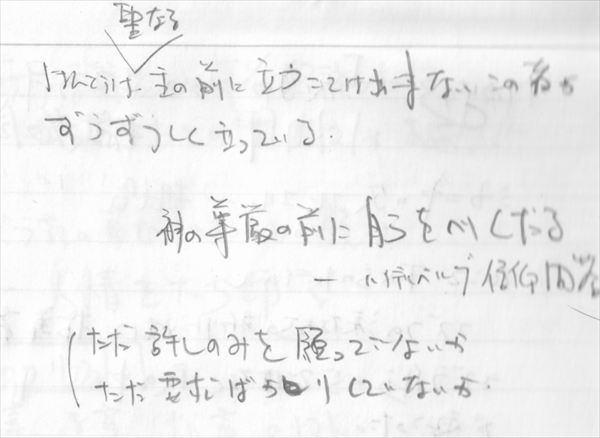 聖なる
ほんとうは、主の前に立つことは出来ないこの者が
ずうずうしく立っている。
神の尊厳の前に身をへりくだる
ー ハイデルベルグ信仰問答
ただ許しのみを願っていないか
ただ要求ばかりしていないか